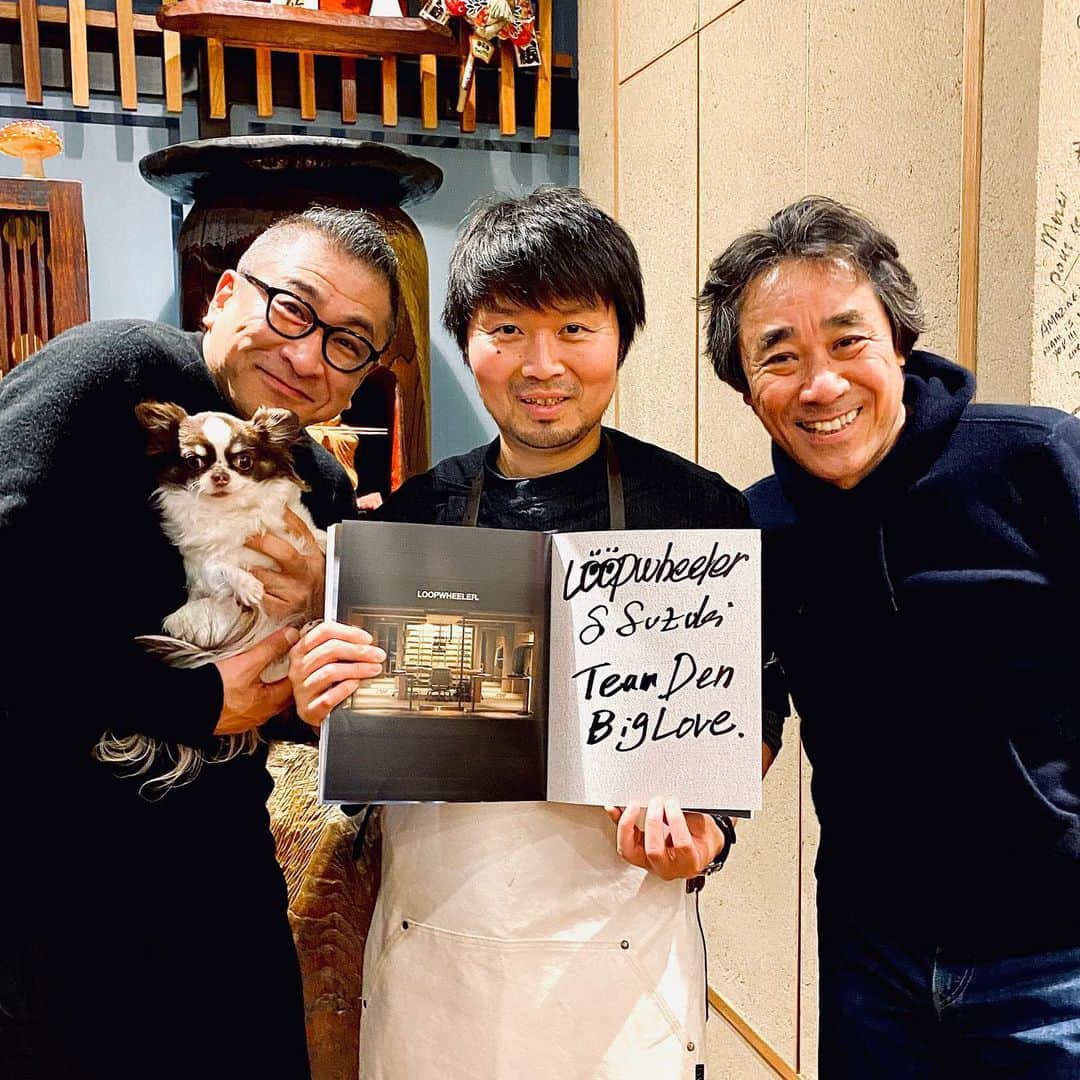 LOOPWHEELER.
Lööpwheeler
S Suzuki
Team Den
Big Love.
Merci
pour ce
AMAZING
YOU !!!